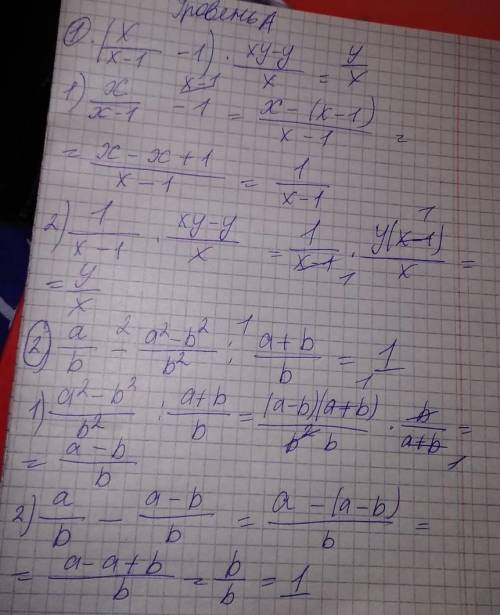 Уровень А
① (x/(x-1) - 1) · (xy-y)/x = y/x
1) x/(x-1) - 1 ^(x-1) = (x-(x-1))/(x-1) =
= (x-x+1)/(x-1) = 1/(x-1)
2) 1/(x-1) · (xy-y)/x = 1/(x-1) · y(x-1)/x =
= y/x
② a/b - (a²-b²)/b² : (a+b)/b = 1
1) (a²-b²)/b² : (a+b)/b = (a-b)(a+b)/(b² b) · b/(a+b) =
= (a-b)/b
2) a/b - (a-b)/b = (a-(a-b))/b =
= (a-a+b)/b = b/b = 1